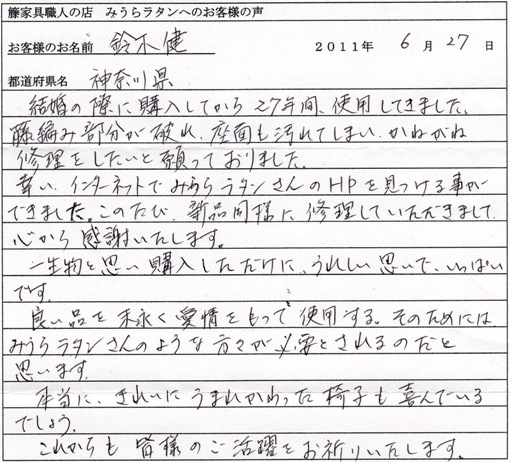 藤家具職人の店 みうらラタンへのお客様の声
お客様のお名前 鈴木健 2011年 6月27日
都道府県名 神奈川県
結婚の際に購入してから27年間、使用してきました。
藤編み部分が破れ、座面も汚れてしまい、かねがね
修理をしたいと願っておりました。
幸い、インターネットでみうらラタンさんのHPを見つける事が
できました。このたび、新品同様に修理していただきまして
心から感謝いたします。
一生物と思い購入しただけに、うれしい思いで、いっぱい
です。
良い品を末永く愛情をもって使用する。そのためには
みうらラタンさんのような方々が必要とされるのだと
思います。
本当に、きれいにうまれかわった椅子も喜んでいる
でしょう。
これからも皆様のご活躍をお祈りいたします。